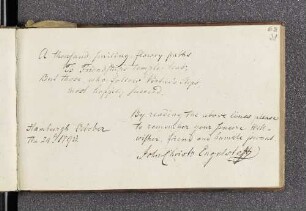 A thousand smiling flowry paths
To Friendships temples lead,
But those who follow Virtue's steps
most happily succeed.
Hamburgh October
The 24th
By reading the above lines please
to remember your sincere Well-
wisher, friend and humble servant
John Christn Engelhoff